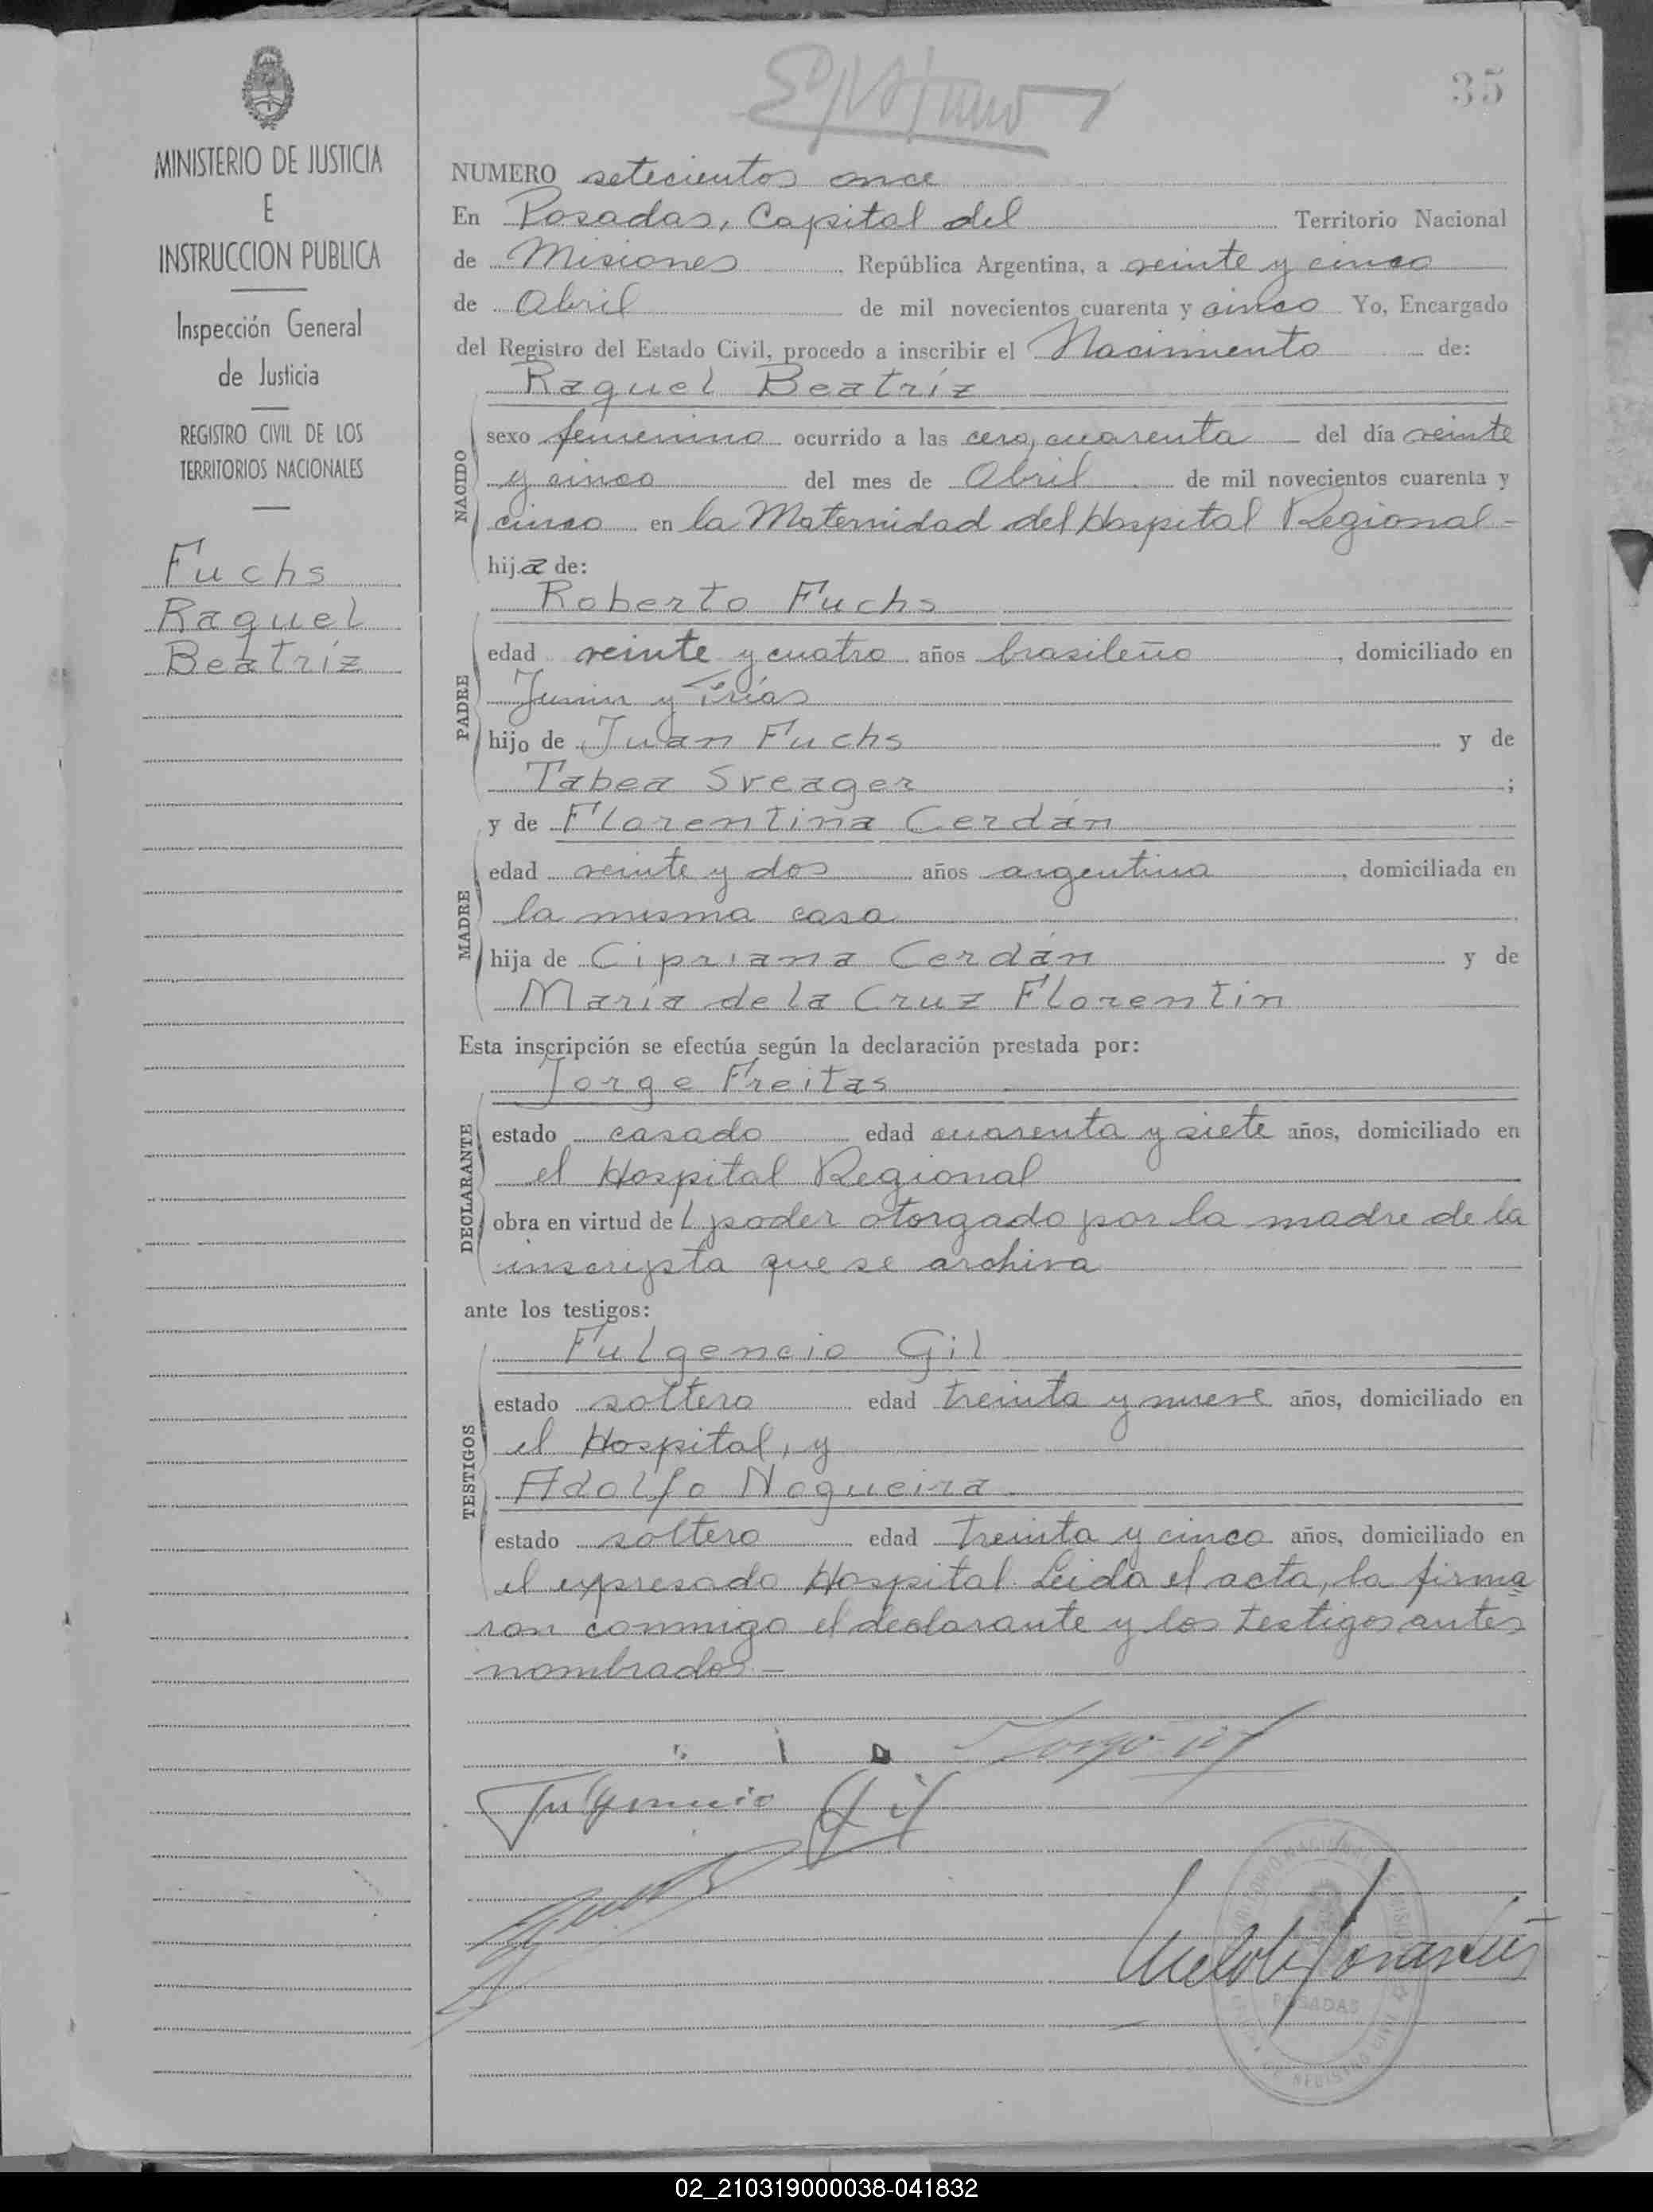 35
MINISTERIO DE JUSTICIA
E
INSTRUCCION PUBLICA
Inspección General
de Justicia
REGISTRO CIVIL DE LOS
TERRITORIOS NACIONALES
Fuchs
Raquel
Beatríz
NUMERO setecientos once
En Posadas, Capital del Territorio Nacional
de Misiones República Argentina, a veinte y cinco
de Abril de mil novecientos cuarenta y cinco Yo, Encargado
del Registro del Estado Civil, procedo a inscribir el Nacimiento de:
Raquel Beatríz
NACIDO
sexo femenino ocurrido a las cero, cuarenta del día veinte
y cinco del mes de Abril de mil novecientos cuarenta y
cinco en la Maternidad del Hospital Regional -
hija de:
Roberto Fuchs
PADRE
edad veinte y cuatro años brasileño, domiciliado en
Junin y Frías
hijo de Juan Fuchs y de
Tabea Sveager ;
y de Florentina Cerdán
MADRE
edad veinte y dos años argentina, domiciliada en
la misma casa
hija de Cipriana Cerdán y de
María de la Cruz Florentin
Esta inscripción se efectúa según la declaración prestada por:
Jorge Freitas
DECLARANTE
estado casado edad cuarenta y siete años, domiciliado en
el Hospital Regional
obra en virtud del poder otorgado por la madre de la
inscripta que se archiva
ante los testigos:
Fulgencio Gil
TESTIGOS
estado soltero edad treinta y nueve años, domiciliado en
el Hospital, y
Adolfo Nogueira
estado soltero edad treinta y cinco años, domiciliado en
el expresado Hospital. Leida el acta, la firma
ron conmigo el declarante y los testigos antes
nombrados.-
Fulgencio Gil
POSADAS
02_210319000038-041832